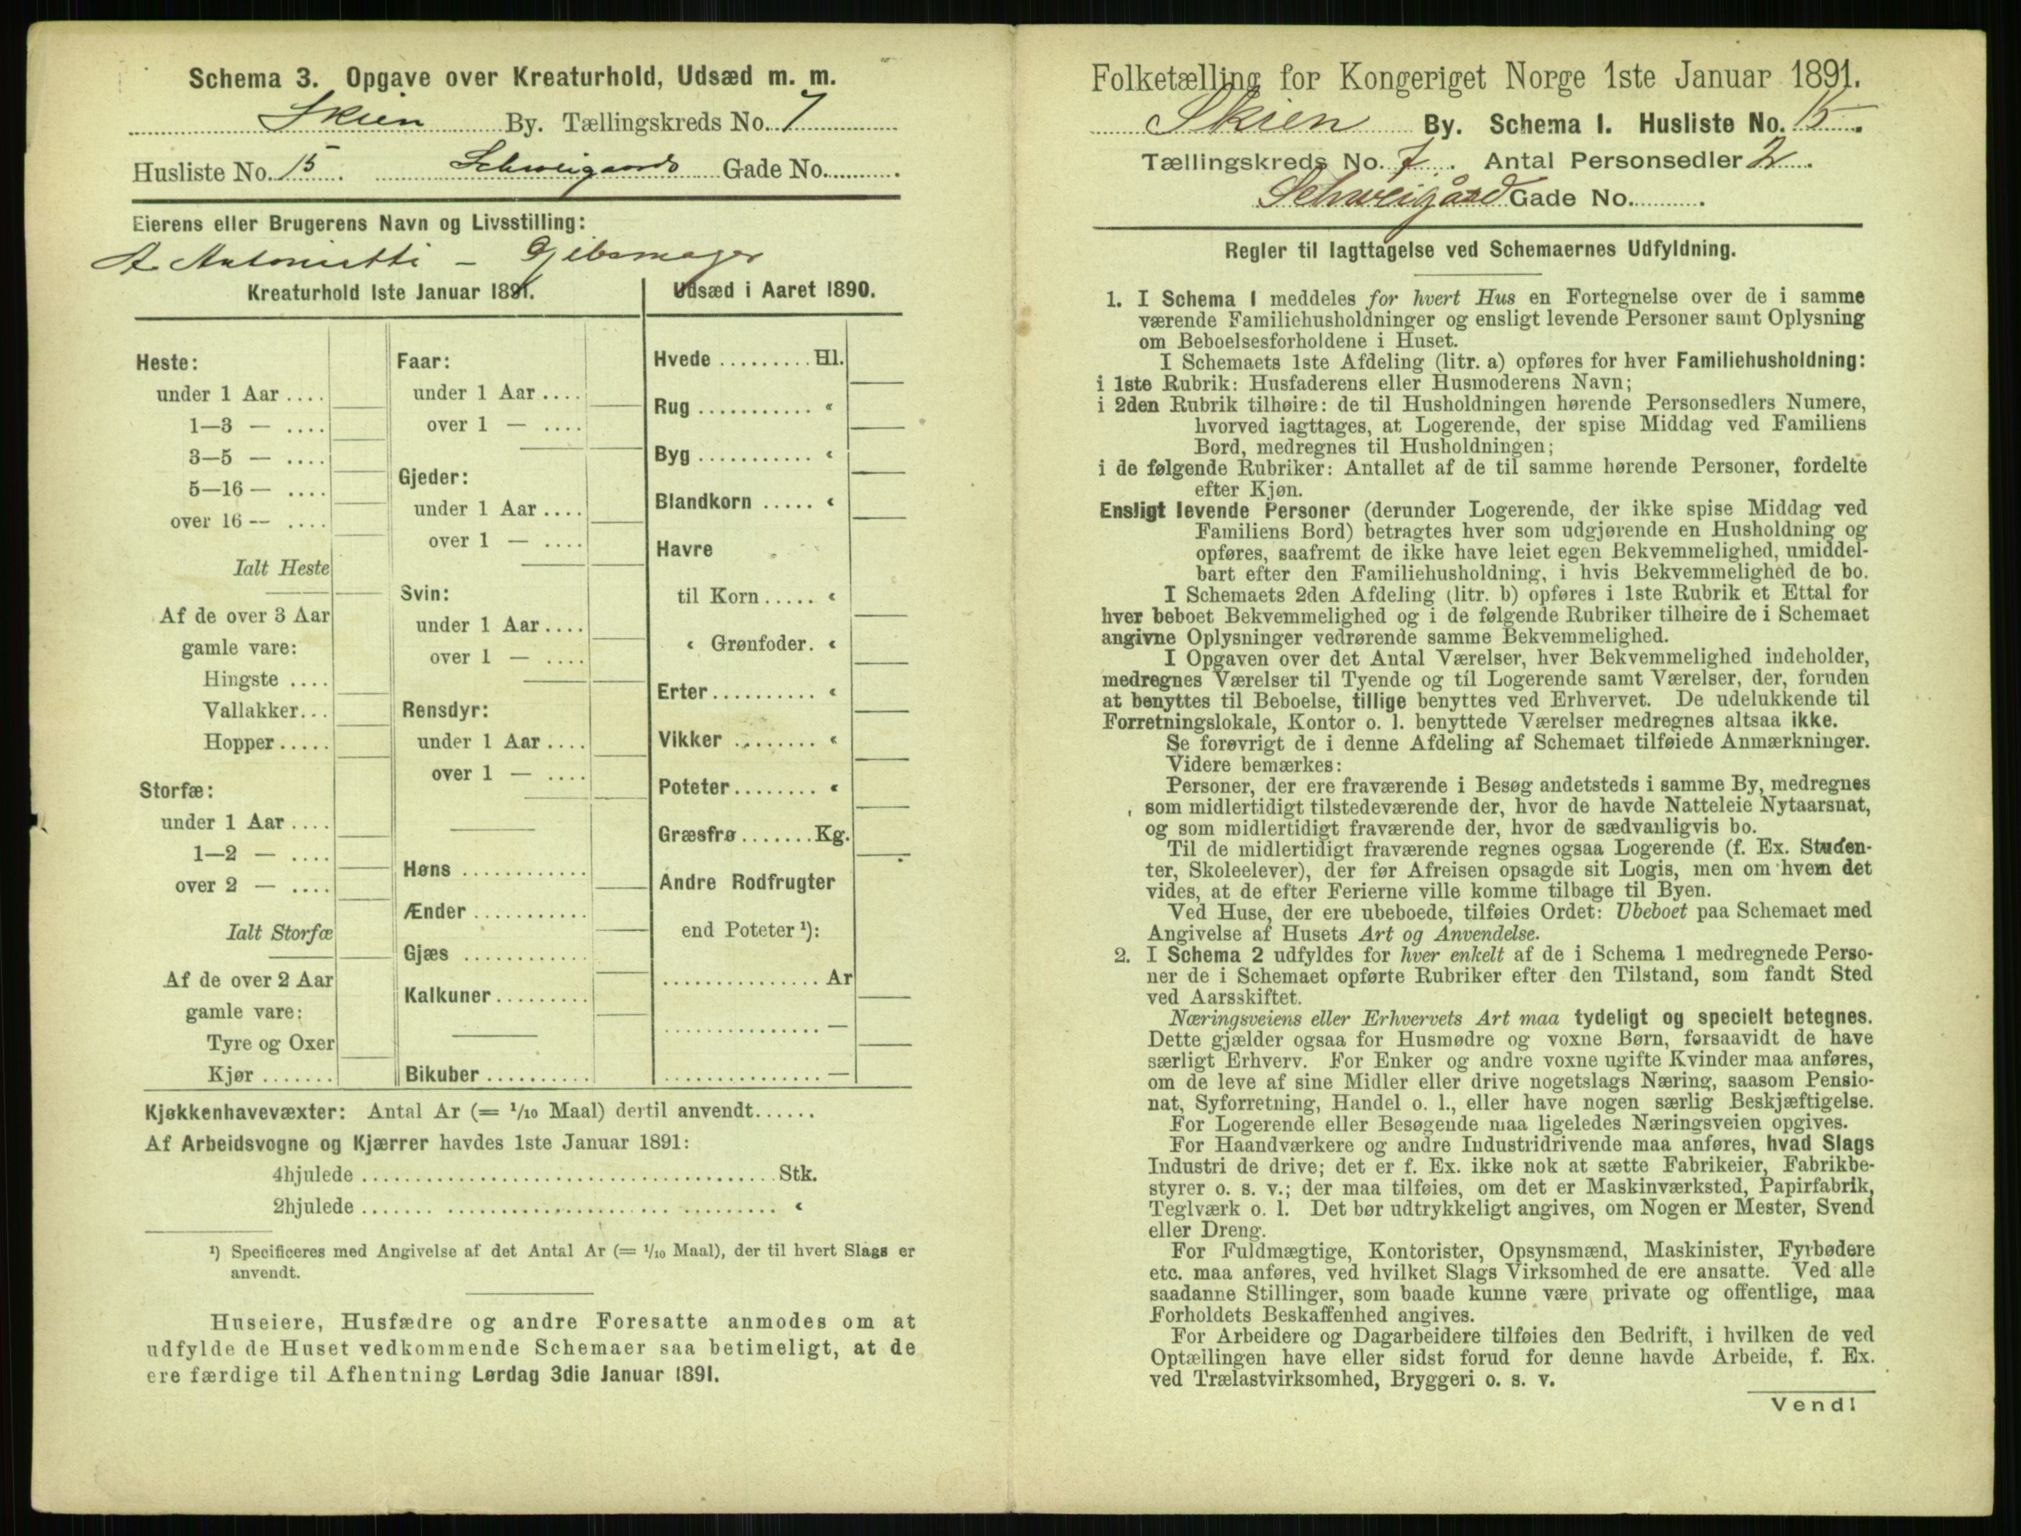 Schema 3. Opgave over Kreaturhold, Udsæd m. m.
Skien By. Tællingskreds No. 7
Husliste No. 15. Schweigaards Gade No.
Eierens eller Brugerens Navn og Livsstilling:
A. Antonietti – Gibsmager
Kreaturhold 1ste Januar 1891.
Heste:
under 1 Aar....
1—3 — ....
3—5 — ....
5—16 — ....
over 16 — ....
Ialt Heste
Af de over 3 Aar
gamle vare:
Hingste ....
Vallakker...
Hopper.....
Storfæ:
under 1 Aar....
1—2 — ....
over 2 — ....
Ialt Storfæ
Af de over 2 Aar
gamle vare:
Tyre og Oxer
Kjør.......
Faar:
under 1 Aar....
over 1 — ....
Gjeder:
under 1 Aar....
over 1 — ....
Svin:
under 1 Aar....
over 1 — ....
Rensdyr:
under 1 Aar....
over 1 — ....
Høns ............
Ænder ...........
Gjæs ............
Kalkuner.........
Bikuber..........
Udsæd i Aaret 1890.
Hvede .........Hl.
Rug ........... «
Byg ........... «
Blandkorn ..... «
Havre
til Korn..... «
« Grønfoder. «
Erter.......... «
Vikker ........ «
Poteter........ «
Græsfrø.......Kg.
Andre Rodfrugter
end Poteter ¹):
............... Ar
............... —
............... —
Kjøkkenhavevæxter: Antal Ar (= 1/10 Maal) dertil anvendt......
Af Arbeidsvogne og Kjærrer havdes 1ste Januar 1891:
4hjulede ........................................Stk.
2hjulede ........................................ «
¹) Specificeres med Angivelse af det Antal Ar (= 1/10 Maal), der til hvert Slags er
anvendt.
Huseiere, Husfædre og andre Foresatte anmodes om at
udfylde de Huset vedkommende Schemaer saa betimeligt, at de
ere færdige til Afhentning Lørdag 3die Januar 1891.
Folketælling for Kongeriget Norge 1ste Januar 1891.
Skien By. Schema 1. Husliste No. 15.
Tællingskreds No. 7. Antal Personsedler 2.
Schweigård Gade No. .
Regler til Iagttagelse ved Schemaernes Udfyldning.
1. I Schema 1 meddeles for hvert Hus en Fortegnelse over de i samme
værende Familiehusholdninger og ensligt levende Personer samt Oplysning
om Beboelsesforholdene i Huset.
I Schemaets 1ste Afdeling (litr. a) opføres for hver Familiehusholdning:
i 1ste Rubrik: Husfaderens eller Husmoderens Navn;
i 2den Rubrik tilhøire: de til Husholdningen hørende Personsedlers Numere,
hvorved iagttages, at Logerende, der spise Middag ved Familiens
Bord, medregnes til Husholdningen;
i de følgende Rubriker: Antallet af de til samme hørende Personer, fordelte
efter Kjøn.
Ensligt levende Personer (derunder Logerende, der ikke spise Middag ved
Familiens Bord) betragtes hver som udgjørende en Husholdning og
opføres, saafremt de ikke have leiet egen Bekvemmelighed, umiddel-
bart efter den Familiehusholdning, i hvis Bekvemmelighed de bo.
I Schemaets 2den Afdeling (litr. b) opføres i 1ste Rubrik et Ettal for
hver beboet Bekvemmelighed og i de følgende Rubriker tilhøire de i Schemaet
angivne Oplysninger vedrørende samme Bekvemmelighed.
I Opgaven over det Antal Værelser, hver Bekvemmelighed indeholder,
medregnes Værelser til Tyende og til Logerende samt Værelser, der, foruden
at benyttes til Beboelse, tillige benyttes ved Erhvervet. De udelukkende til
Forretningslokale, Kontor o. l. benyttede Værelser medregnes altsaa ikke.
Se forøvrigt de i denne Afdeling af Schemaet tilføiede Anmærkninger.
Videre bemærkes:
Personer, der ere fraværende i Besøg andetsteds i samme By, medregnes
som midlertidigt tilstedeværende der, hvor de havde Natteleie Nytaarsnat,
og som midlertidigt fraværende der, hvor de sædvanligvis bo.
Til de midlertidigt fraværende regnes ogsaa Logerende (f. Ex. Studen-
ter, Skoleelever), der før Afreisen opsagde sit Logis, men om hvem det
vides, at de efter Ferierne ville komme tilbage til Byen.
Ved Huse, der ere ubeboede, tilføies Ordet: Ubeboet paa Schemaet med
Angivelse af Husets Art og Anvendelse.
2. I Schema 2 udfyldes for hver enkelt af de i Schema 1 medregnede Perso-
ner de i Schemaet opførte Rubriker efter den Tilstand, som fandt Sted
ved Aarsskiftet.
Næringsveiens eller Erhvervets Art maa tydeligt og specielt betegnes.
Dette gjælder ogsaa for Husmødre og voxne Børn, forsaavidt de have
særligt Erhverv. For Enker og andre voxne ugifte Kvinder maa anføres,
om de leve af sine Midler eller drive nogetslags Næring, saasom Pensio-
nat, Syforretning, Handel o. l., eller have nogen særlig Beskjæftigelse.
For Logerende eller Besøgende maa ligeledes Næringsveien opgives.
For Haandværkere og andre Industridrivende maa anføres, hvad Slags
Industri de drive; det er f. Ex. ikke nok at sætte Fabrikeier, Fabrikbe-
styrer o. s. v.; der maa tilføies, om det er Maskinværksted, Papirfabrik,
Teglværk o. l. Det bør udtrykkeligt angives, om Nogen er Mester, Svend
eller Dreng.
For Fuldmægtige, Kontorister, Opsynsmænd, Maskinister, Fyrbødere
etc. maa anføres, ved hvilket Slags Virksomhed de ere ansatte. Ved alle
saadanne Stillinger, som baade kunne være private og offentlige, maa
Forholdets Beskaffenhed angives.
For Arbeidere og Dagarbeidere tilføies den Bedrift, i hvilken de ved
Optællingen have eller sidst forud for denne havde Arbeide, f. Ex.
ved Trælastvirksomhed, Bryggeri o. s. v.
Vend!